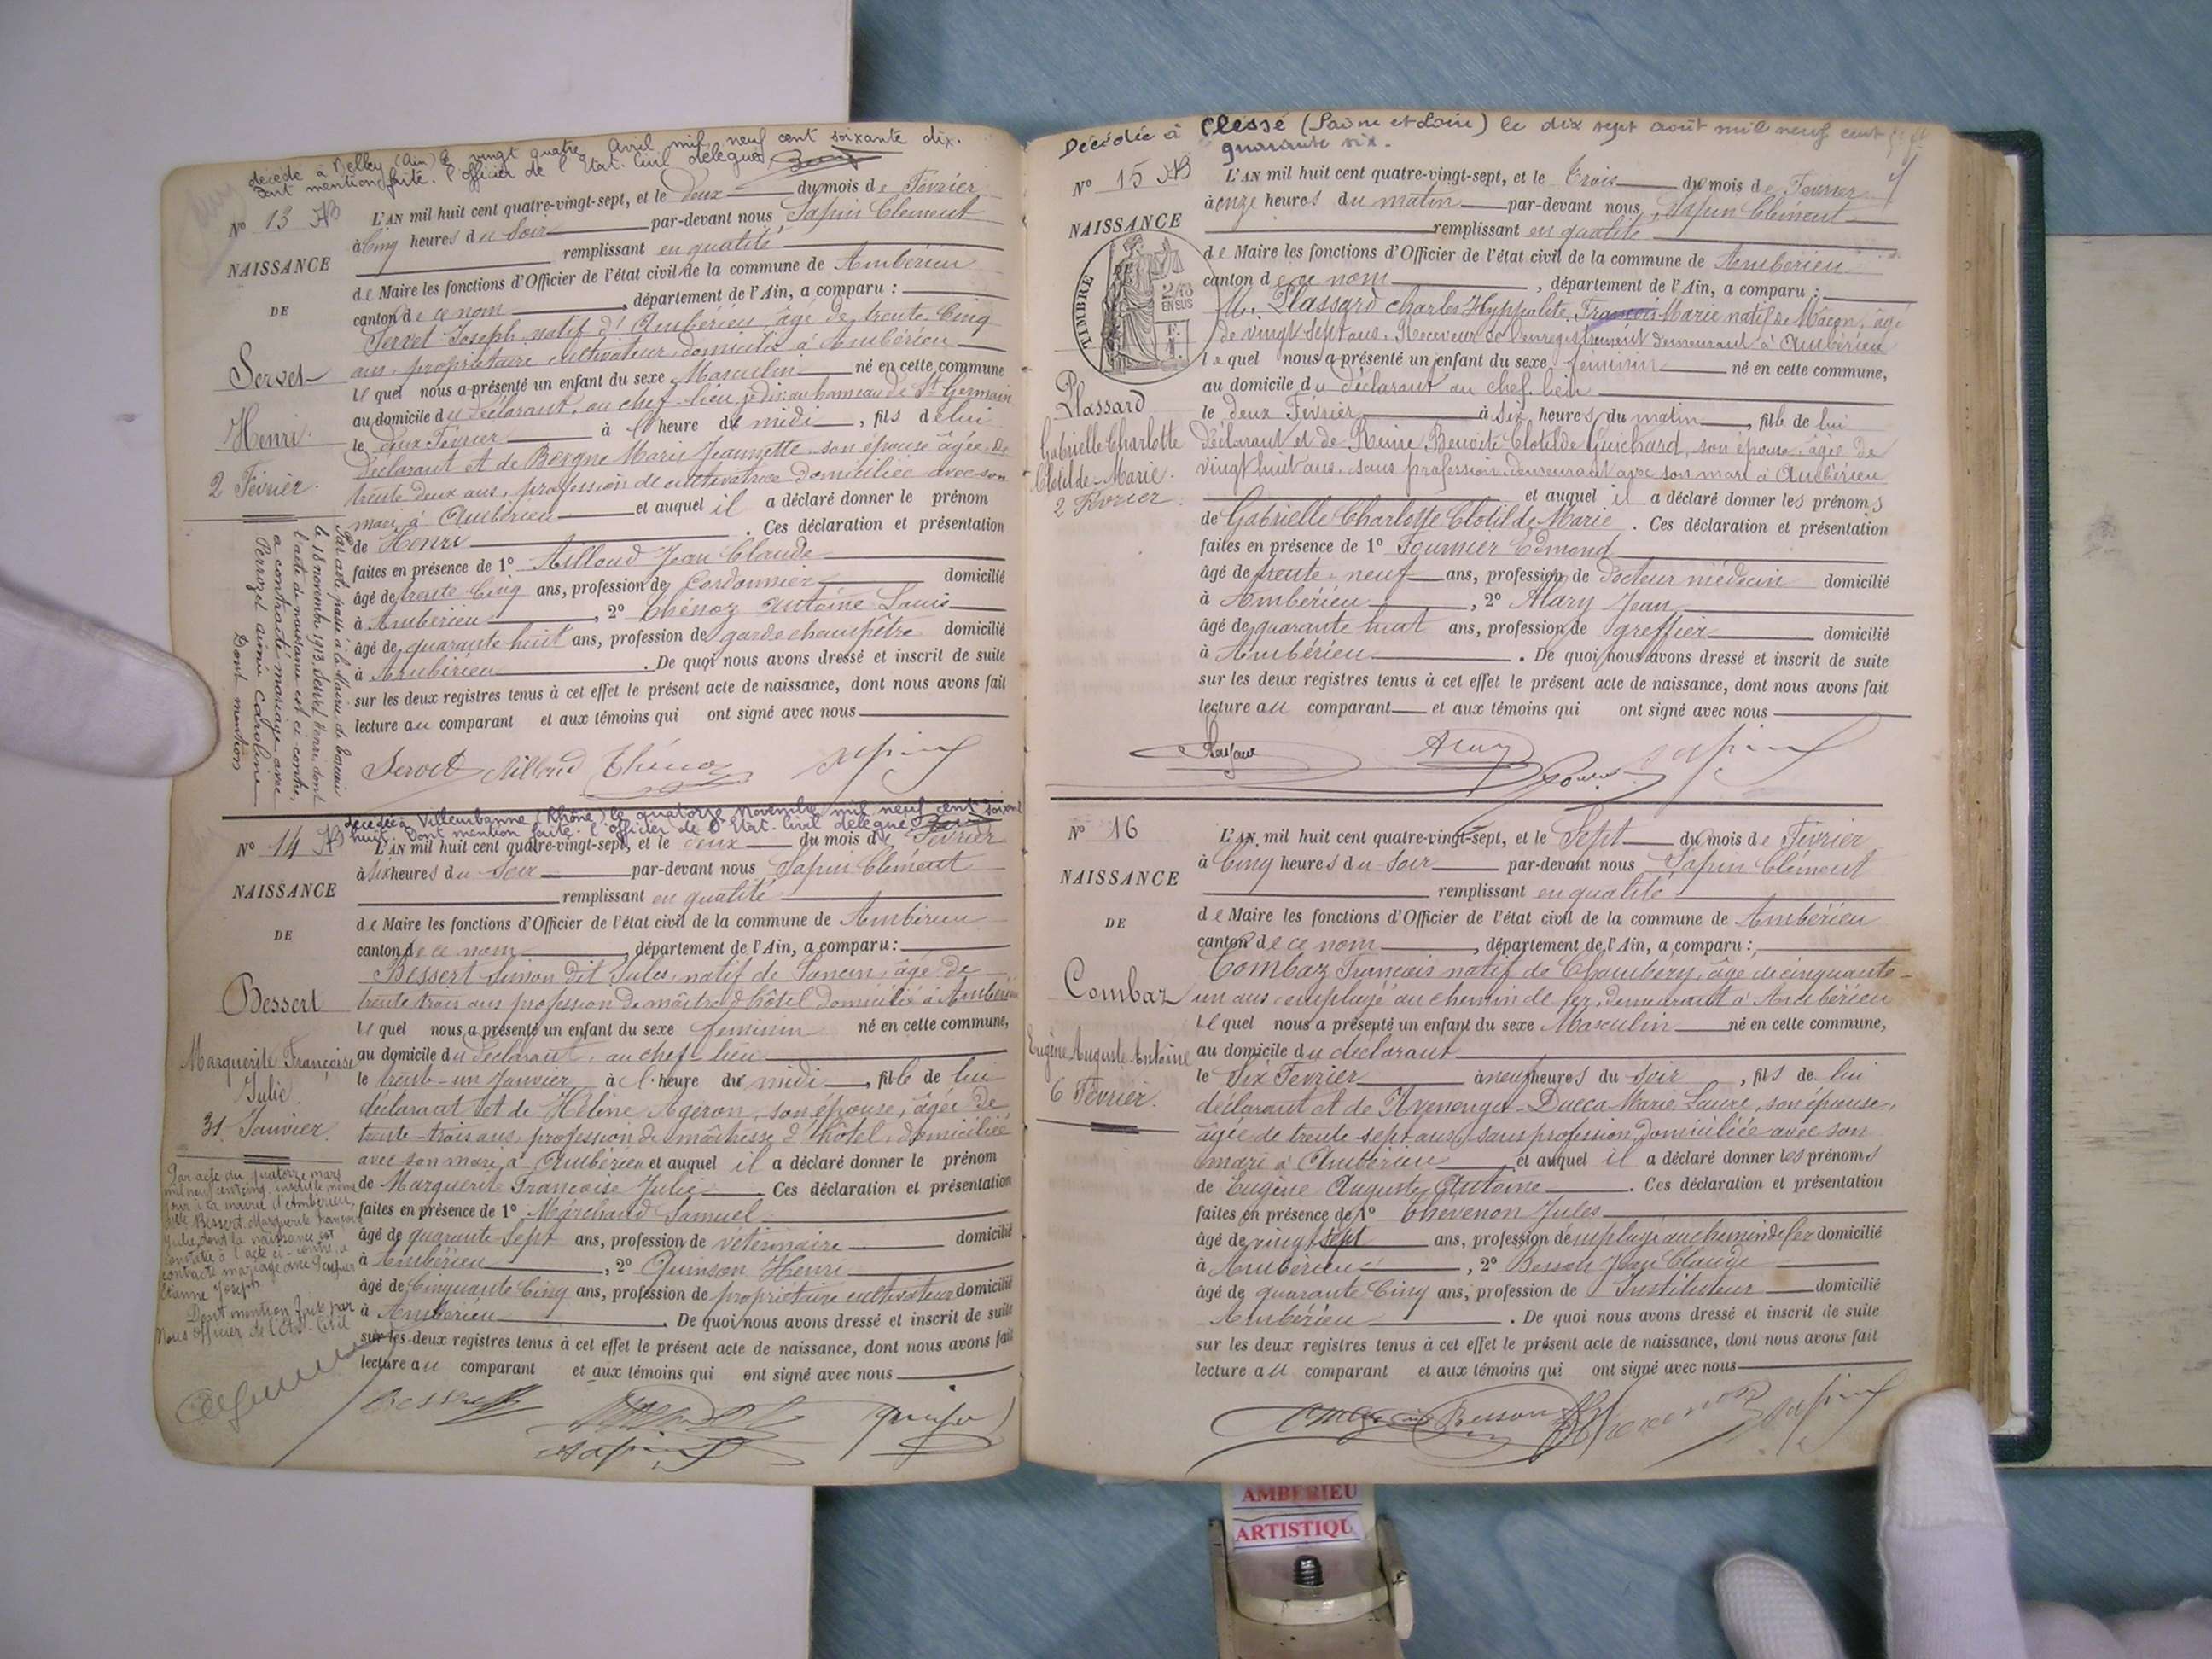 décédé à Belley (Ain) le vingt quatre Avril mil neuf cent soixante dix.
Dont mention faite. l'officier de l'Etat. Civil délégué
N° 13
NAISSANCE
DE
Servet
Henri
2 Février.
L'AN mil huit cent quatre-vingt-sept, et le deux du mois de Février
à Cinq heures du Soir par-devant nous Sapin Clément
remplissant en qualité
de Maire les fonctions d'Officier de l'état civil de la commune de Ambérieu
canton de ce nom, département de l'Ain, a comparu :
Servet Joseph natif d'Ambérieu âgé de trente-Cinq
ans, propriétaire cultivateur domicilié à Ambérieu
lequel nous a présenté un enfant du sexe Masculin né en cette commune
au domicile du déclarant, au chef-lieu je dis: au hameau de St Germain
le deux Février à l' heure de midi, fils de lui
déclarant et de Bergne Marie Jeannette son épouse âgée de
trente deux ans, profession de cultivatrice domiciliée avec son
mari à Ambérieu et auquel il a déclaré donner le prénom
de Henri. Ces déclaration et présentation
faites en présence de 1° Aillaud Jean Claude
âgé de trente Cinq ans, profession de Cordonnier domicilié
à Ambérieu, 2° Thénoz Antoine Louis
âgé de quarante huit ans, profession de garde champêtre domicilié
à Ambérieu. De quoi nous avons dressé et inscrit de suite
sur les deux registres tenus à cet effet le présent acte de naissance, dont nous avons fait
lecture au comparant et aux témoins qui ont signé avec nous
Par acte passé à la Mairie de
le 18 novembre 1913, Servet Henri, dont
l'acte de naissance est ci-contre,
a contracté mariage avec
Perrozet Caroline
Dont mention
Servet Aillaud Thénoz Sapin
décédée à Villeurbanne (Rhône) le quatorze Novembre mil neuf cent soixante
huit. Dont mention faite. l'officier de l'Etat. Civil délégué
N° 14
NAISSANCE
DE
Bessert
Marguerite Françoise
Julie.
31 Janvier.
L'AN mil huit cent quatre-vingt-sept, et le deux du mois de Février
à six heures du Soir par-devant nous Sapin Clément
remplissant en qualité
de Maire les fonctions d'Officier de l'état civil de la commune de Ambérieu
canton de ce nom, département de l'Ain, a comparu :
Bessert Simon dit Jules, natif de âgé de
trente trois ans profession de maître d'hôtel domicilié à Ambérieu
lequel nous a présenté un enfant du sexe féminin né en cette commune,
au domicile du déclarant, au chef-lieu
le trente-un Janvier à l' heure de midi, fille de lui
déclarant et de Hélène Ageron, son épouse, âgée de
trente-trois ans, profession de maîtresse d'hôtel, domiciliée
avec son mari à Ambérieu et auquel il a déclaré donner le prénom
de Marguerite Françoise Julie. Ces déclaration et présentation
faites en présence de 1° Marchand Samuel
âgé de quarante Sept ans, profession de vétérinaire domicilié
à Ambérieu, 2° Quinson Henri
âgé de Cinquante Cinq ans, profession de propriétaire cultivateur domicilié
à Ambérieu. De quoi nous avons dressé et inscrit de suite
sur les deux registres tenus à cet effet le présent acte de naissance, dont nous avons fait
lecture au comparant et aux témoins qui ont signé avec nous
Par acte du quatorze mars
mil neuf cent cinq, inscrit le même
jour à la mairie d'Ambérieu,
Bessert Marguerite Françoise
Julie, dont la naissance est
constatée à l'acte ci-contre, a
contracté mariage avec
Etienne Joseph
Dont mention faite par
Nous officier de l'Etat-Civil
Bessert
Sapin
Décédée à Clessé (Saône et Loire) le dix sept août mil neuf cent
quarante six.
N° 15
NAISSANCE
TIMBRE
2/10 EN SUS
Plassard
Gabrielle Charlotte
Clotilde-Marie.
2 Février
L'AN mil huit cent quatre-vingt-sept, et le trois du mois de Février
à onze heures du matin par-devant nous, Sapin Clément
remplissant en qualité
de Maire les fonctions d'Officier de l'état civil de la commune de Ambérieu
canton de ce nom, département de l'Ain, a comparu :
M. Plassard Charles Hyppolite, François Marie natif de Mâcon, âgé
de vingt Sept ans, Receveur de l'enregistrement demeurant à Ambérieu
lequel nous a présenté un enfant du sexe féminin né en cette commune,
au domicile du déclarant au chef-lieu
le deux Février à Six heures du matin, fille de lui
déclarant et de Reine Benoite Clotilde Guichard, son épouse, âgée de
vingt huit ans, sans profession, demeurant avec son mari à Ambérieu
et auquel il a déclaré donner les prénoms
de Gabrielle Charlotte Clotilde Marie. Ces déclaration et présentation
faites en présence de 1° Fournier Edmond
âgé de trente-neuf ans, profession de Docteur médecin domicilié
à Ambérieu, 2° Alary Jean
âgé de quarante huit ans, profession de greffier domicilié
à Ambérieu. De quoi nous avons dressé et inscrit de suite
sur les deux registres tenus à cet effet le présent acte de naissance, dont nous avons fait
lecture au comparant et aux témoins qui ont signé avec nous
Alary
Sapin
N° 16
NAISSANCE
DE
Combaz
Eugène Auguste Antoine
6 Février.
L'AN mil huit cent quatre-vingt-sept, et le Sept du mois de Février
à Cinq heures du Soir par-devant nous Sapin Clément
remplissant en qualité
de Maire les fonctions d'Officier de l'état civil de la commune de Ambérieu
canton de ce nom, département de l'Ain, a comparu :
Combaz François natif de Chambéry, âgé de cinquante-
un ans employé au chemin de fer, demeurant à Ambérieu
lequel nous a présenté un enfant du sexe Masculin né en cette commune,
au domicile du déclarant
le Six Février à neuf heures du Soir, fils de lui
déclarant et de Marie Laure, son épouse,
âgée de trente-sept ans, sans profession, domiciliée avec son
mari à Ambérieu et auquel il a déclaré donner les prénoms
de Eugène Auguste Antoine. Ces déclaration et présentation
faites en présence de 1° Chevenon Jules
âgé de vingt sept ans, profession d'employé au chemin de fer domicilié
à Ambérieu, 2° Besson Jean Claude
âgé de quarante Cinq ans, profession de Instituteur domicilié
Ambérieu. De quoi nous avons dressé et inscrit de suite
sur les deux registres tenus à cet effet le présent acte de naissance, dont nous avons fait
lecture au comparant et aux témoins qui ont signé avec nous
Besson Sapin
AMBERIEU
ARTISTIQU